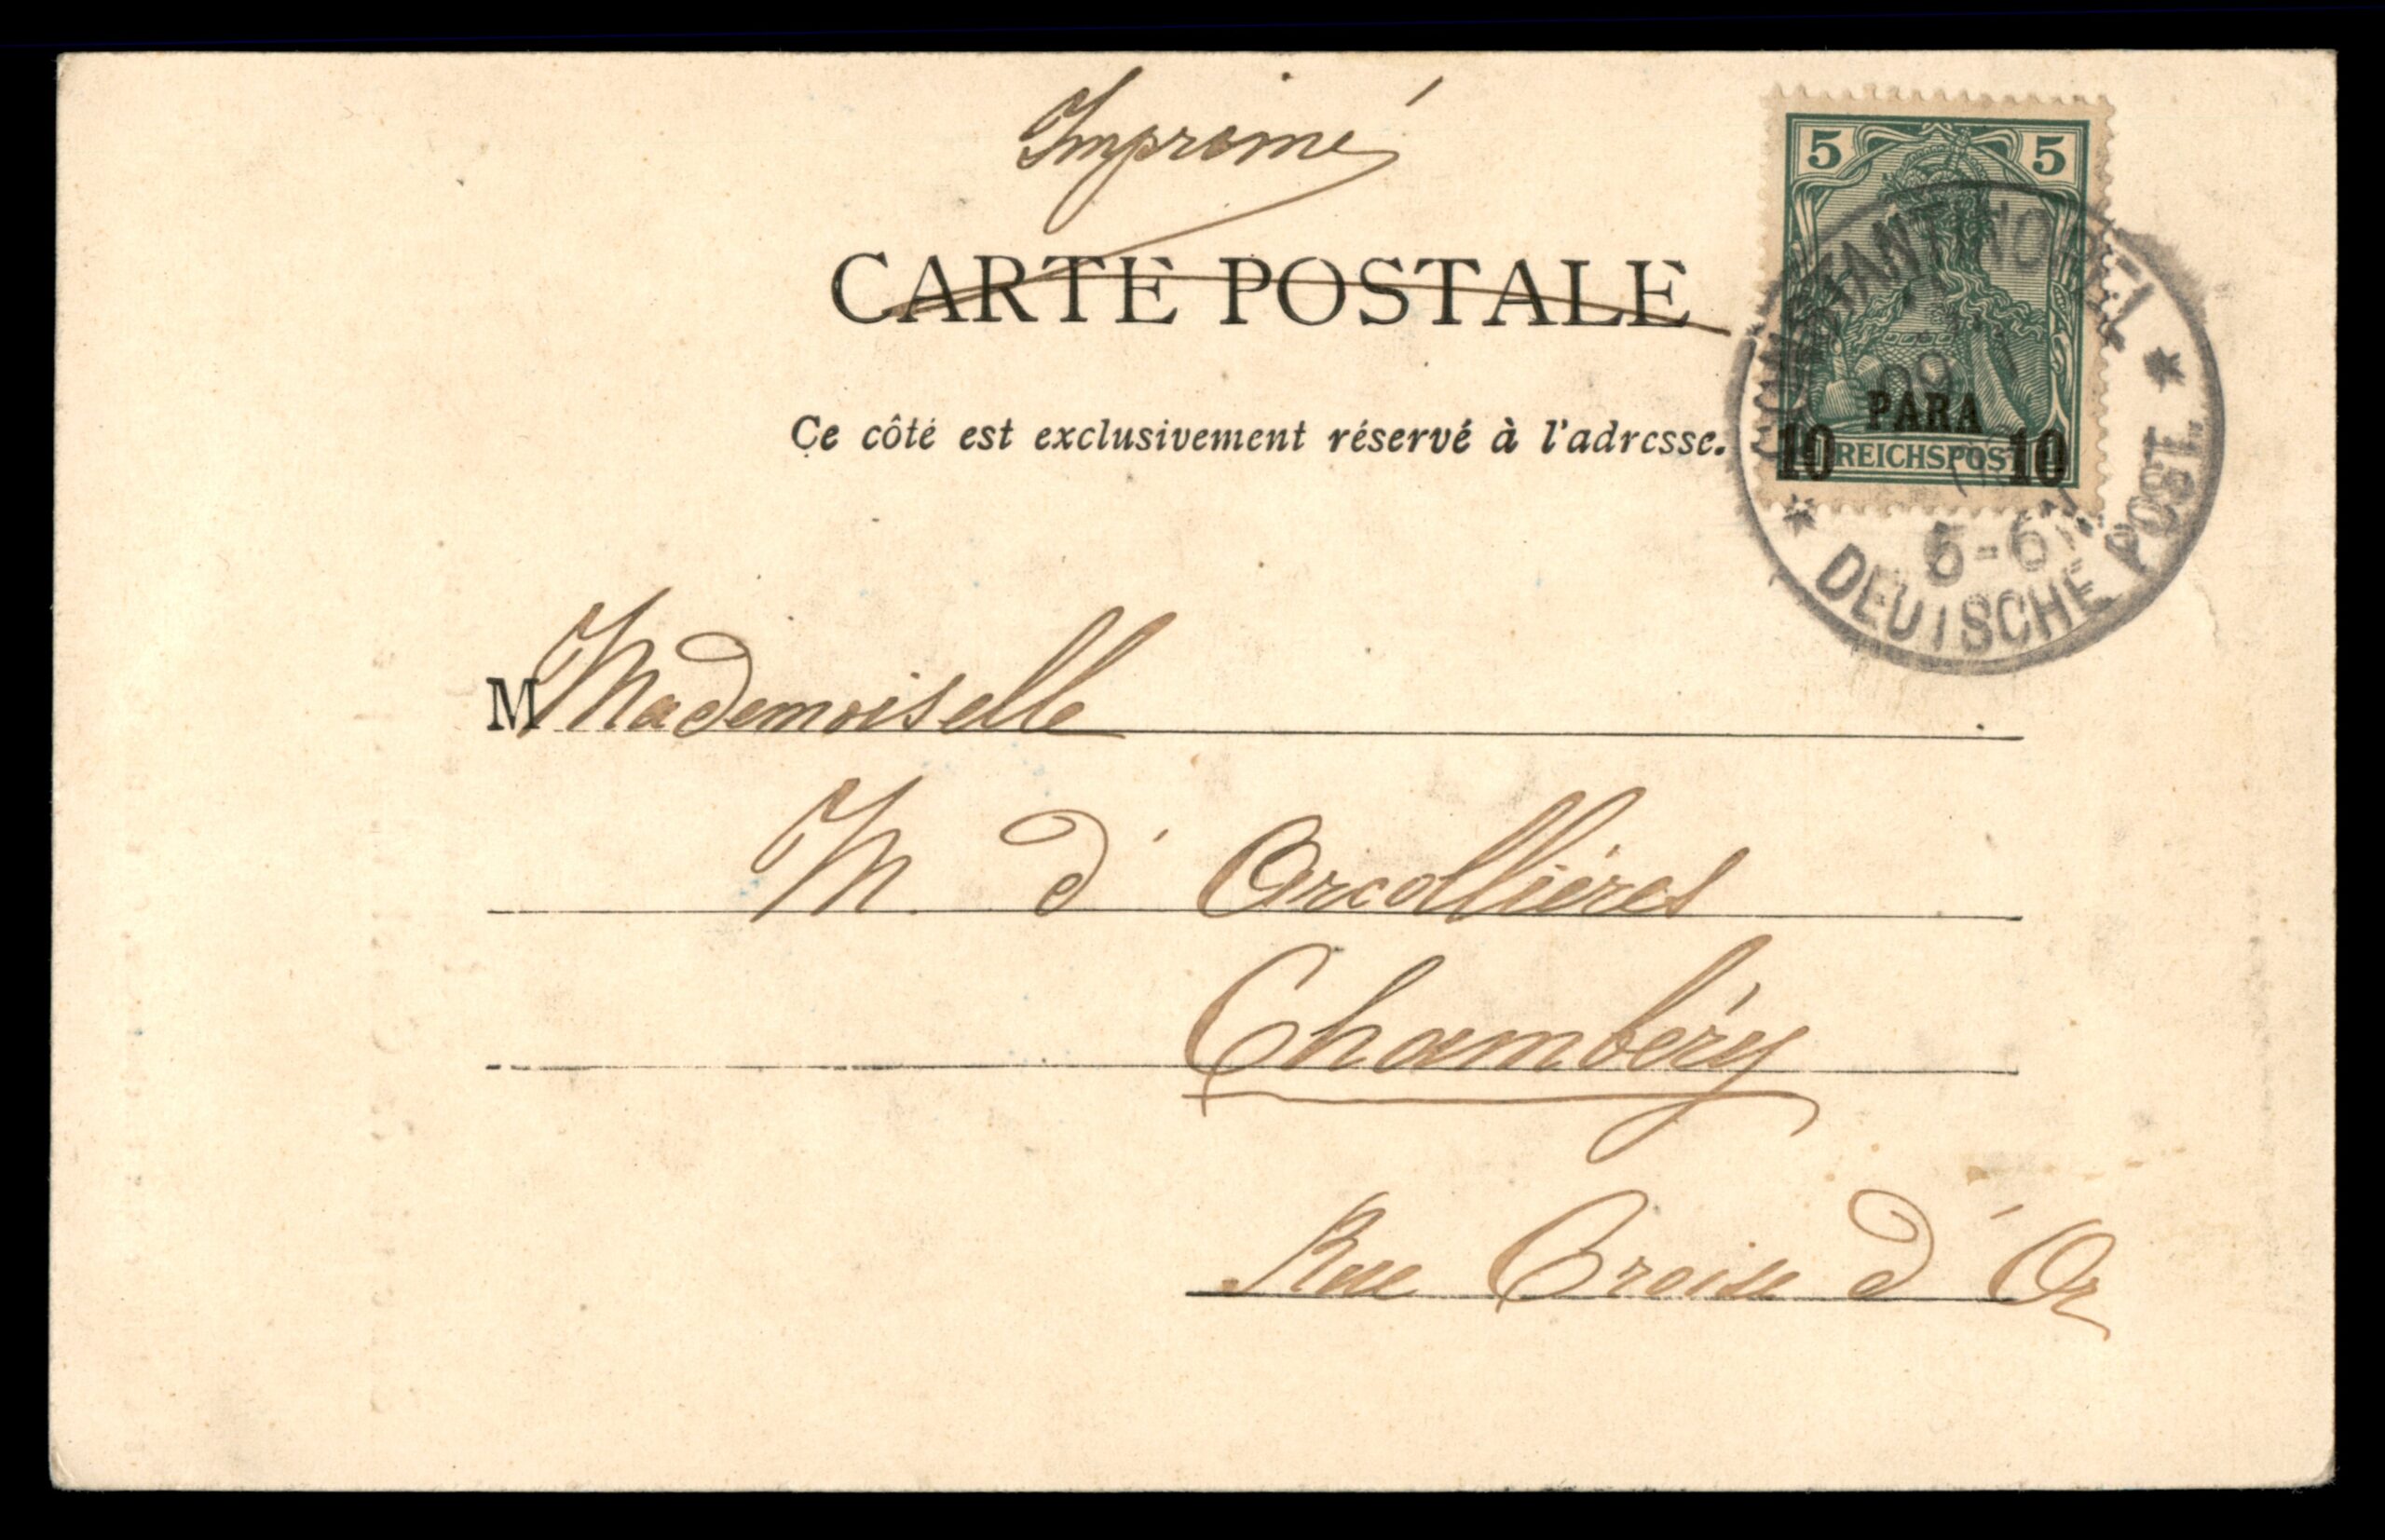 Imprimé
5 5
CARTE POSTALE
CONSTANTINOPEL
Ce côté est exclusivement réservé à l'adresse.
PARA
10 REICHSPOST 10
5-6N
DEUTSCHE POST.
M Mademoiselle
M. d'Arcollières
Chambéry
Rue Croix d'Or